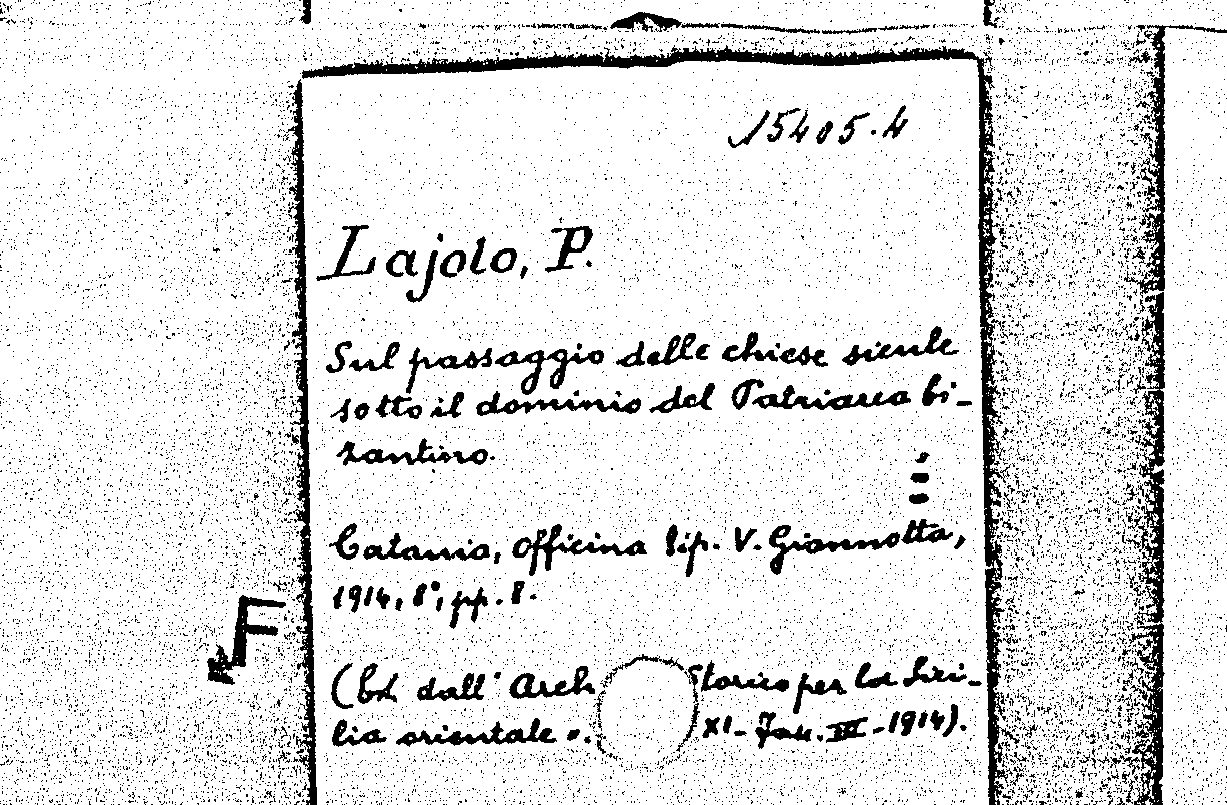 15405.4
Lajolo, P.
Sul passaggio delle chiese sicule
sotto il dominio del Patriarca bi-
zantino.
Catania, Officina Tip. V. Giannotta,
1914, 8°, pp. 8.
F
dall' Arch Storico per la Sici-
lia orientale ». XI - Fasc. III - 1914).